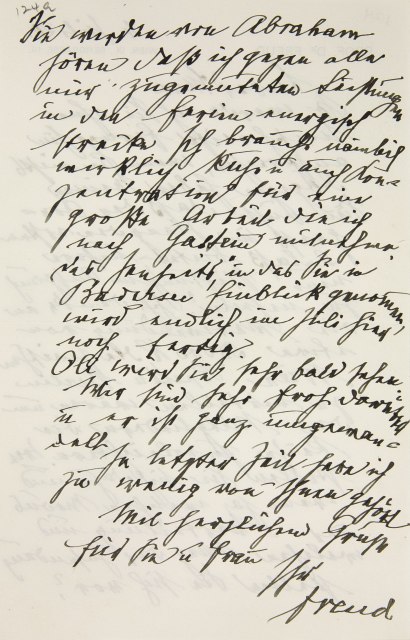 124a
Sie werden von Abraham
hören daß ich gegen alle
mir zugemuteten Leistungen
in den Ferien energisch
streike Ich brauche nämlich
wirklich Ruhe u auch Kon-
zentration für eine
große Arbeit die ich
nach Gastein mitnehme.
das Jenseits in das Sie in
Badersee Einblick genommen,
wird endlich im Juli hier
noch fertig.
Oli wird Sie sehr bald sehen.
Wir sind sehr froh darüber
u er ist ganz umgewan-
delt. In letzter Zeit habe ich
zu wenig von Ihnen gehört
Mit herzlichem Gruß
für Sie u Frau
Ihr
Freud